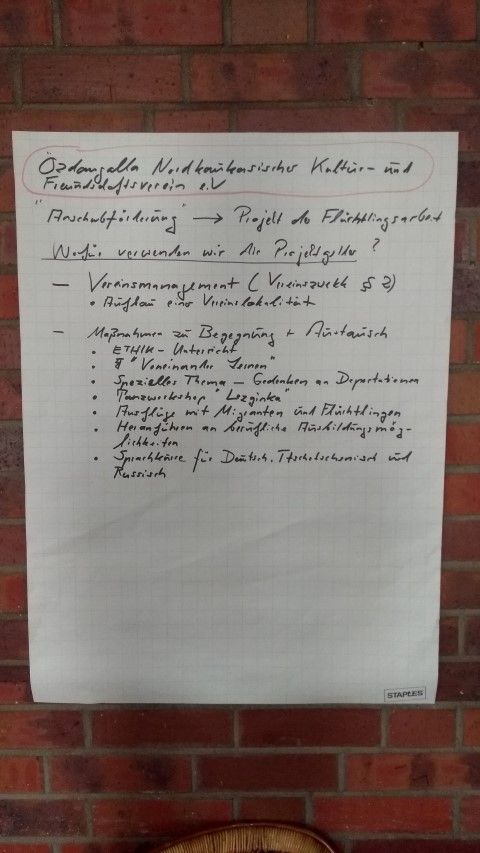 Özdangalla Nordkaukasischer Kultur- und
Freundschaftsverein e.V
"Anschubförderung" → Projekt der Flüchtlingsarbeit
Wofür verwenden wir die Projektgelder ?
— Vereinsmanagement ( Vereinszweck § 2)
• Aufbau einer Vereinslokalität
— Maßnahmen zu Begegnung + Austausch
• ETHIK - Unterricht
• "Voneinander Lernen"
• Spezielles Thema — Gedenken an Deportationen
• Tanzworkshop "Lezginka"
• Ausflüge mit Migranten und Flüchtlingen
• Heranführen an berufliche Ausbildungsmög-
lichkeiten
• Sprachkurse für Deutsch, Tschetschenisch und
Russisch
STAPLES